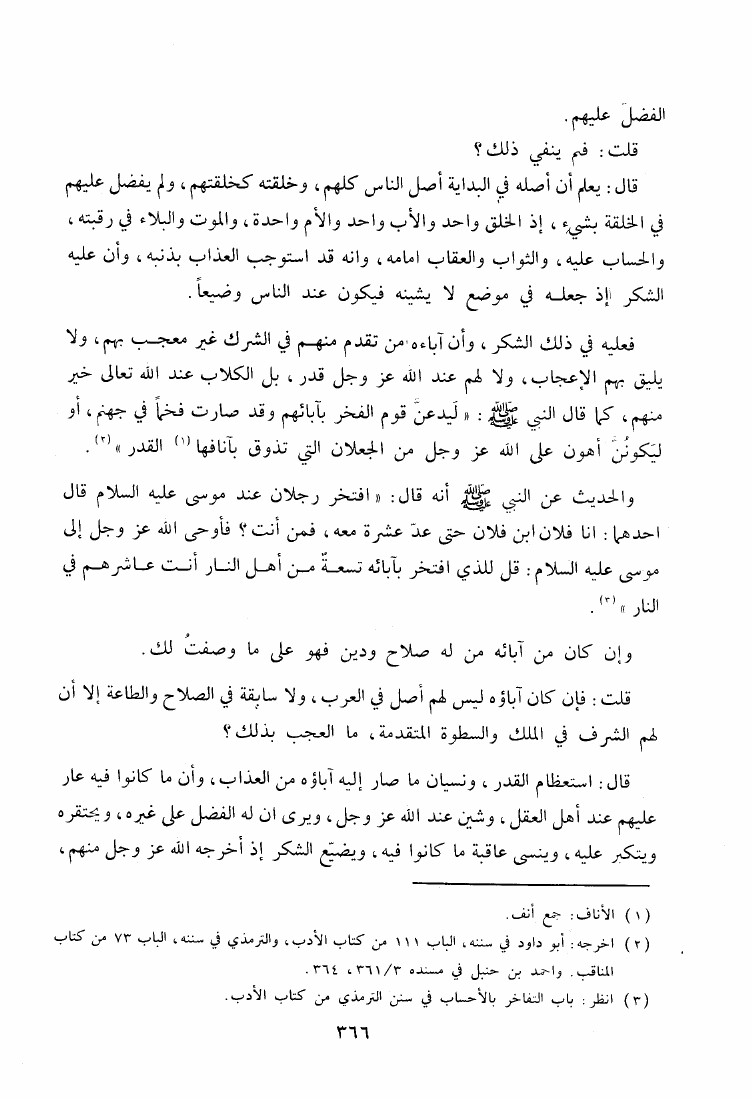 الفضلَ عليهم.
قلت: فم ينفي ذلك؟
قال: يعلم أن أصله في البداية أصل الناس كلهم، وخلقته كخلقتهم، ولم يفضل عليهم
في الخلقة بشيء، إذ الخلق واحد والأب واحد والأم واحدة، والموت والبلاء في رقبته،
والحساب عليه، والثواب والعقاب امامه، وانه قد استوجب العذاب بذنبه، وأن عليه
الشكر إذ جعله في موضع لا يشينه فيكون عند الناس وضيعاً.
فعليه في ذلك الشكر، وأن آباءه من تقدم منهم في الشرك غير معجب بهم، ولا
يليق بهم الإعجاب، ولا لهم عند الله عز وجل قدر، بل الكلاب عند الله تعالى خير
منهم، كما قال النبي ﷺ: « لَيدعنَّ قوم الفخر بآبائهم وقد صارت فخماً في جهنم، أو
ليَكونُنَّ أهون على الله عز وجل من الجعلان التي تذوق بآنافها (١) القدر » (٢).
والحديث عن النبي ﷺ أنه قال: « افتخر رجلان عند موسى عليه السلام قال
احدهما: انا فلان ابن فلان حتى عدّ عشرة معه، فمن أنت؟ فأوحى الله عز وجل إلى
موسى عليه السلام: قل للذي افتخر بآبائه تسعةٌ من أهل النار أنت عاشرهم في
النار » (٣).
وإن كان من آبائه من له صلاح ودين فهو على ما وصفتُ لك.
قلت: فإن كان آباؤه ليس لهم أصل في العرب، ولا سابقة في الصلاح والطاعة إلا أن
لهم الشرف في الملك والسطوة المتقدمة، ما العجب بذلك؟
قال: استعظام القدر، ونسيان ما صار إليه آباؤه من العذاب، وأن ما كانوا فيه عار
عليهم عند أهل العقل، وشين عند الله عز وجل، ويرى ان له الفضل على غيره، ويحتقره
ويتكبر عليه، وينسى عاقبة ما كانوا فيه، ويضيّع الشكر إذ أخرجه الله عز وجل منهم،
(١) الأناف: جمع أنف.
(٢) اخرجه: أبو داود في سننه، الباب ١١١ من كتاب الأدب، والترمذي في سننه، الباب ٧٣ من كتاب
المناقب. واحمد بن حنبل في مسنده ٣٦١/٣، ٣٦٤.
(٣) انظر: باب التفاخر بالأحساب في سنن الترمذي من كتاب الأدب.
٣٦٦